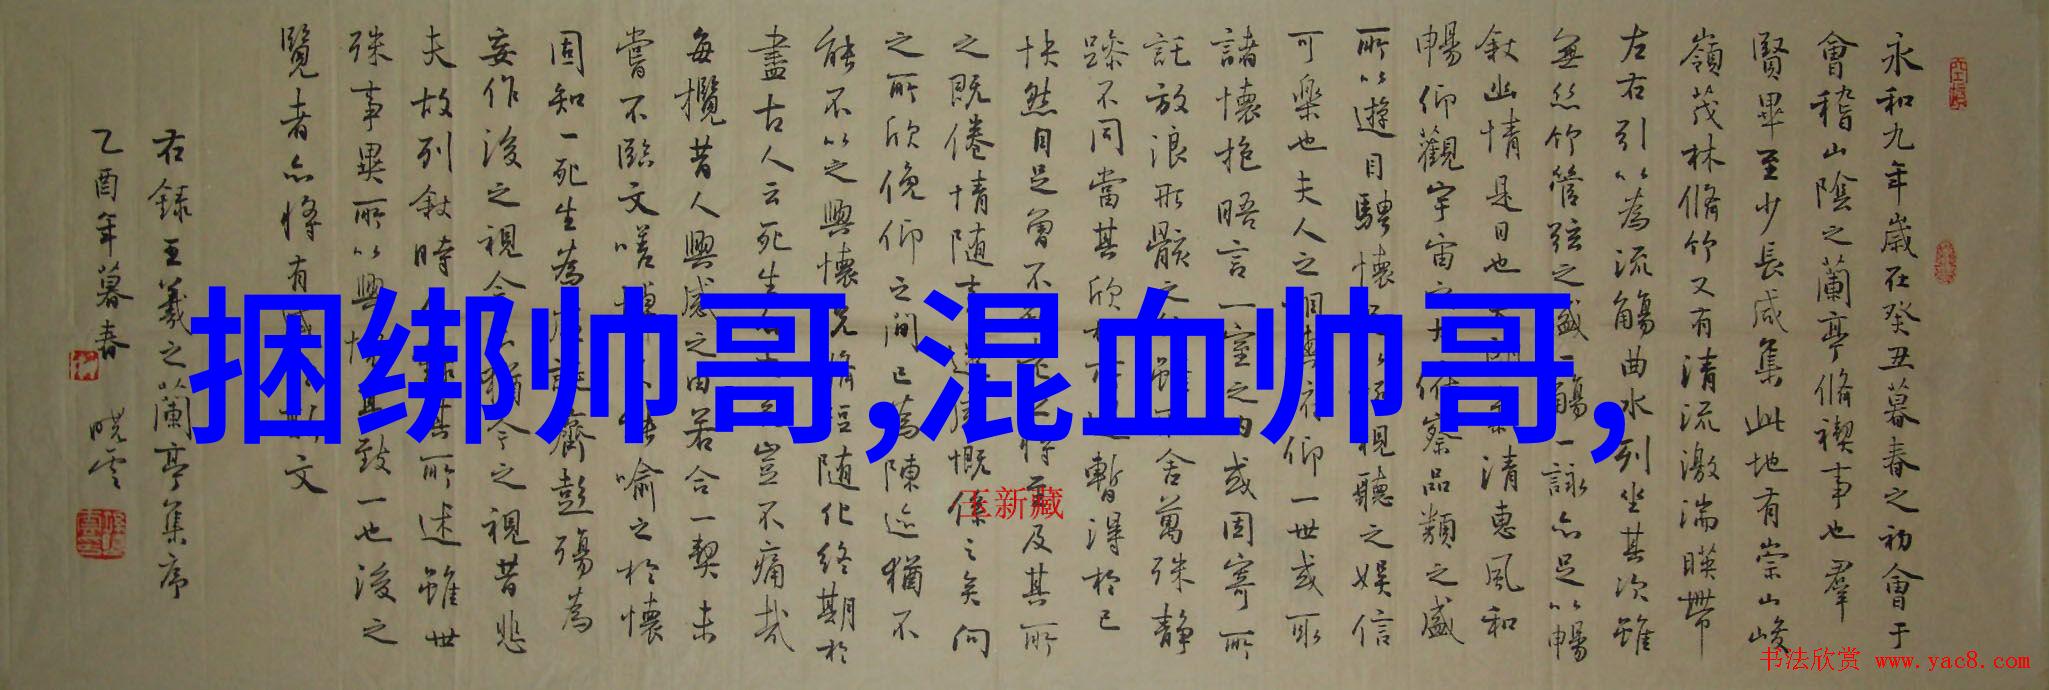 永和九年歲在癸丑暮春之初會于
會稽山陰之蘭亭脩禊事也羣
賢畢至少長咸集此地有崇山峻
嶺茂林脩竹又有清流激湍暎帶
左右引以為流觴曲水列坐其次雖
無絲竹管弦之盛一觴一詠亦足以暢
敘幽情是日也天朗氣清惠風和
暢仰觀宇宙之大俯察品類之盛
所以遊目騁懷足以極視聽之娛信
可樂也夫人之相與俯仰一世或取
諸懷抱晤言一室之內或因寄所
託放浪形骸之外雖取舍萬殊靜
躁不同當其欣於所遇暫得於己
快然自足曾不知老之將至及其所
之既倦情隨事遷感慨係之矣向
之所欣俛仰之間已為陳迹猶不
能不以之興懷況脩短隨化終期於
盡古人云死生亦大矣豈不痛哉
每攬昔人興感之由若合一契未
嘗不臨文嗟悼不能喻之於懷
固知一死生為虛誕齊彭殤為
妄作後之視今亦猶今之視昔悲
夫故列敘時人錄其所述雖世
殊事異所以興懷其致一也後之
覽者亦將有感於斯文
右錄王羲之蘭亭集序
乙酉年暮春 曉雲
捆绑帅哥,混血帅哥,
王新藏
书法欣赏 www.yac8.com